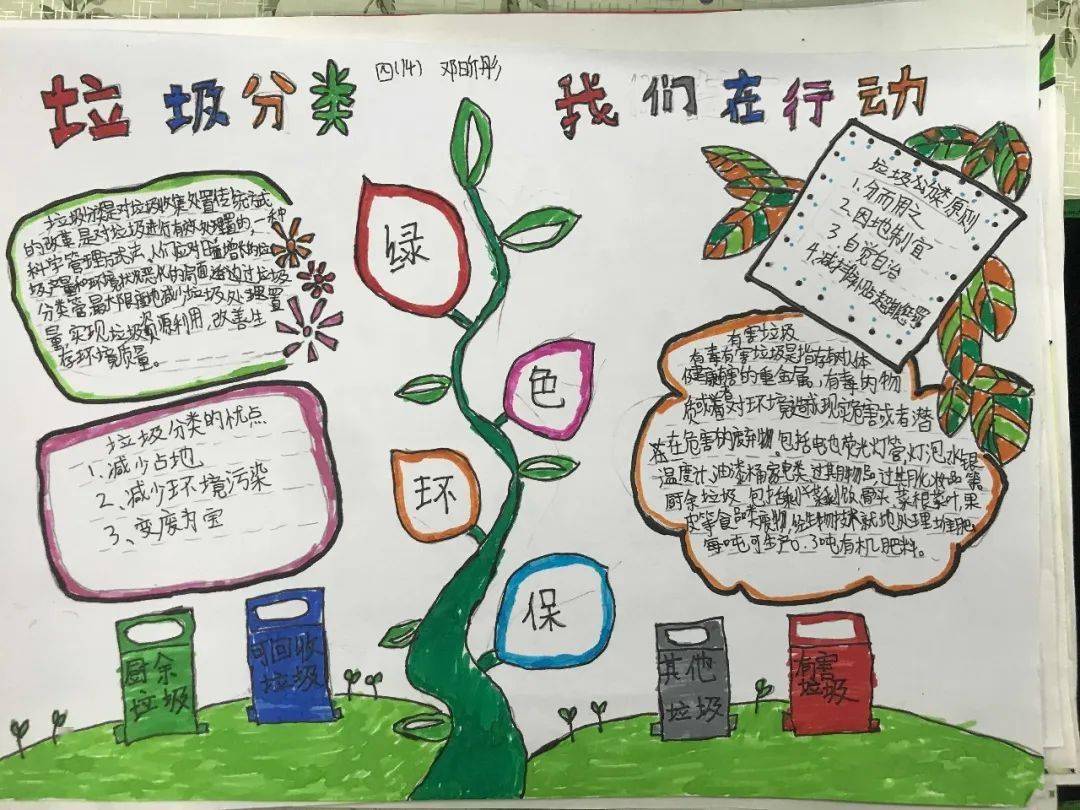 垃圾分类
四(14) 邓昕彤
我们在行动
垃圾分类是对垃圾收集处置传统方式
的改革,是对垃圾进行有效处理置的,一种
科学管理方式法,人们应对日益增长的垃
圾产量和环境状况恶化的局面通过垃圾
分类管最大限度地减少垃圾处理置
量,实现垃圾资源利用,改善生
存环境质量。
垃圾分类的优点
1、减少占地
2、减少环境污染
3、变废为宝
绿
色
环
保
垃圾分类原则
1.分而用之
2.因地制宜
3.自觉自治
4.减排补贴超排
有害垃圾
有毒有害垃圾是指存有对人体
健康有害的重金属,有毒的物
质或者对环境造成现实危害或者潜
在危害的废弃物,包括电池荧光灯管灯泡,水银
温度计,油漆桶家电类,过期药品,过期化妆品等
厨余垃圾 包括剩菜剩饭骨头,菜根菜叶,果
皮等食品类废物,经生物技术就地处理堆肥
每吨可生产0.3吨有机肥料。
厨余
垃圾
可回收
垃圾
其他
垃圾
有害
垃圾